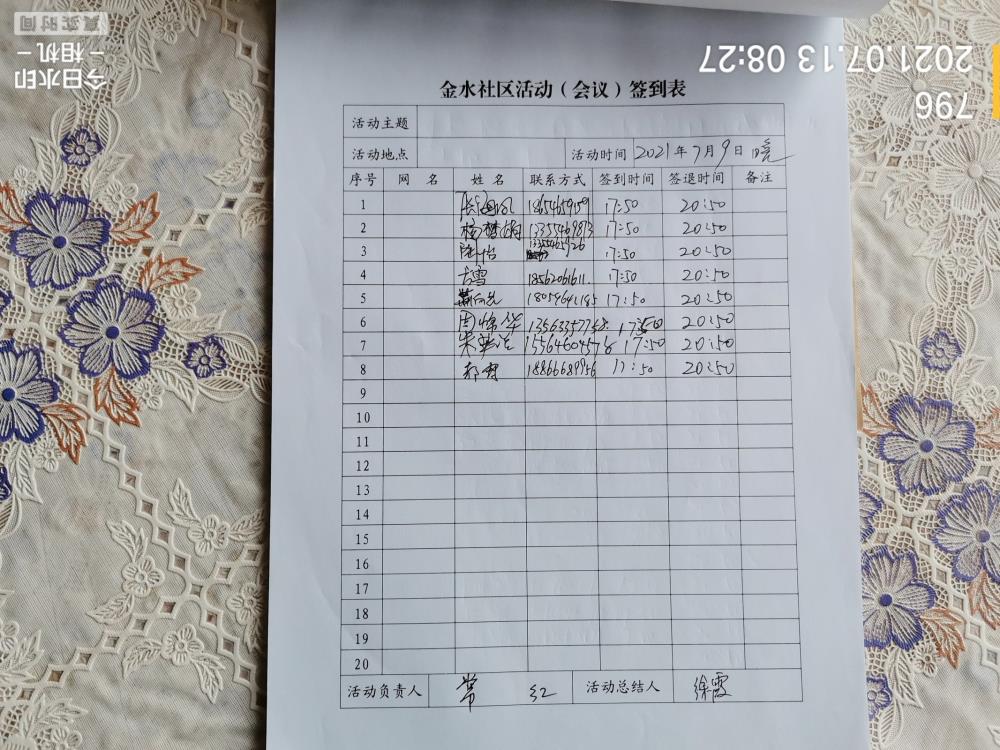 金水社区活动（会议）签到表
活动主题
活动地点 活动时间 2021年7月9日晚
序号 网名 姓名 联系方式 签到时间 签退时间 备注
1 17:50 20:50
2 13355469813 17:50 20:50
3 陆怡 17:50 20:50
4 方雪 18562061611 17:50 20:50
5 18054641185 17:50 20:50
6 17:50 20:50
7 15564604576 17:50 20:50
8 郝雪 18866689956 17:50 20:50
9
10
11
12
13
14
15
16
17
18
19
20
活动负责人 常红 活动总结人 徐霞
796
2021.07.13 08:27
今日水印
－相机－
真实时间